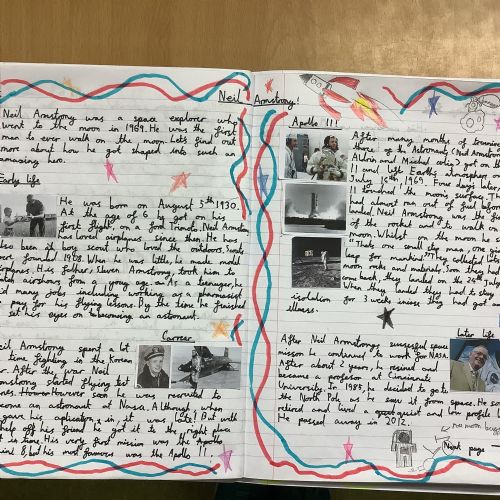 Neil Armstrong!
Neil Armstrong was a space explorer who
went to the moon in 1969. He was the first
man to ever walk on the moon. Lets find out
more about how he got shaped into such an
amazing hero.
Early life
He was born on August 5th 1930.
At the age of 6 he got on his
first flight, on a ford Trimoto. Neil Armstrong
has loved airplanes since then. He has
also been a boy scout who loved the outdoors.
were founded 1908. When he was little, he made model
airplanes. His father, Steven Armstrong, took him to
watch airshows from a young age. As a teenager, he
had many jobs including working as a pharmasist
to pay for his flying lessons. By the time he finished
set his eyes on becoming an astronaut.
Carreer
Neil Armstrong spent a lot
time fighting in the Korean
War. After the war Neil
Armstrong started flying test
planes. However soon he was recruited to
become an astronaut at Nasa. Although, when
gave his application in, it was late! But with
help off his friend he got it to the right place
at is time. His very first mission was the Apollo
8, but his most famous was the Apollo 11.
Apollo 11!
After many months of training
three of the Astronauts (Neil Armstrong,
Aldrin and Michael colin) got on the
11 and left Earth's atmosphere on
July 16th 1969. Four days later
11 touched the moon's surface. They
had almost run out of fuel before
landed. Neil Armstrong was the
of the rocket and to walk on
moon. Whilst on the moon he
"Thats one small step man, one
leap for mankind" They collected
moon rocks and materials. Soon they had
come back. They landed on the 24th July
When they landed they had to stay
isolation for 3 weeks incase they had got
illness.
Later life
After Neil Armstrongs sucsessful space
misson he continued to work for NASA.
After about 2 years, he resigned and
became a profesor at Cincinnati
University. In 1985, he decided to go to
the North Pole as he saw it from space. He soon
retired and lived a quiet and low profile
He passed away in 2012.
moon buggy
Next page